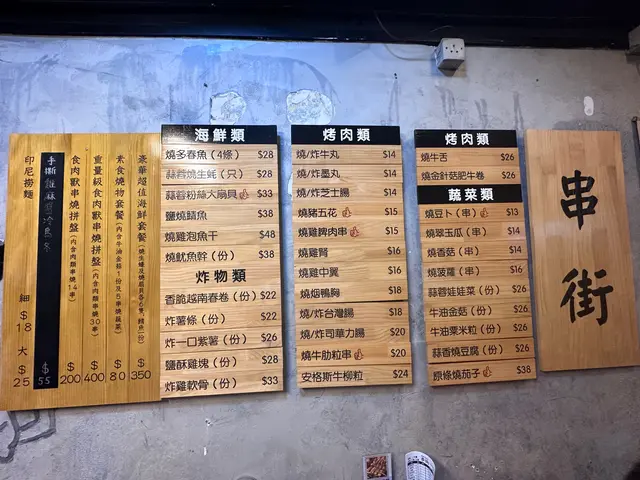 豪華超值海鮮套餐 $350
素食燒物套餐（內含牛油金菇1份及5串燒蔬菜） $80
重量級食肉獸串燒拼盤（內含肉類串燒30串） $400
食肉獸串燒拼盤（內含肉類串燒14串） $200
手撕雞麻醬冷烏冬 $55
印尼撈麵 細$18 大$25
海鮮類
燒多春魚（4條） $28
蒜蓉燒生蚝（只） $28
蒜蓉粉絲大扇貝 $33
鹽燒鯖魚 $38
燒雞泡魚干 $48
燒魷魚幹（份） $38
炸物類
香脆越南春卷（份） $22
炸薯條（份） $22
炸一口紫薯（份） $26
鹽酥雞塊（份） $28
炸雞軟骨（份） $33
烤肉類
燒/炸牛丸 $14
燒/炸墨丸 $14
燒/炸芝士腸 $14
燒豬五花 $15
燒雞髀肉串 $15
燒雞腎 $16
燒雞中翼 $16
燒烟鴨胸 $18
燒/炸台灣腸 $18
燒/炸司華力腸 $20
燒牛肋粒串 $20
安格斯牛柳粒 $24
烤肉類
燒牛舌 $26
燒金針菇肥牛卷 $26
蔬菜類
燒豆卜（串） $13
燒翠玉瓜（串） $14
燒香菇（串） $14
燒菠蘿（串） $16
蒜蓉娃娃菜（份） $26
牛油金菇（份） $26
牛油粟米粒（份） $26
蒜香燒豆腐（份） $26
原條燒茄子 $38
串街